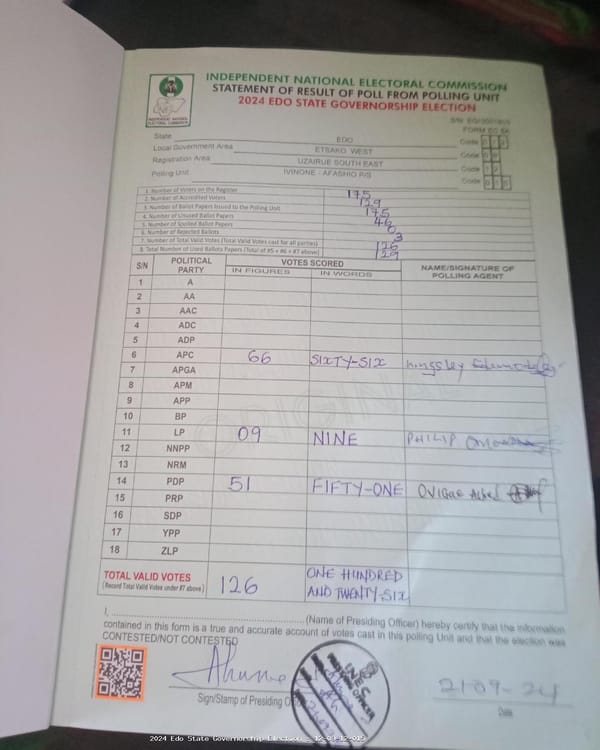 INDEPENDENT NATIONAL ELECTORAL COMMISSION
STATEMENT OF RESULT OF POLL FROM POLLING UNIT
2024 EDO STATE GOVERNORSHIP ELECTION
INDEPENDENT NATIONAL ELECTORAL COMMISSION
FORM EC 8A
State EDO Code
Local Government Area ETSAKO WEST Code
Registration Area UZAIRUE SOUTH EAST Code
Polling Unit IVINONE - AFASHIO R/S Code
1. Number of Voters on the Register 175
2. Number of Accredited Voters 129
3. Number of Ballot Papers Issued to the Polling Unit 175
4. Number of Unused Ballot Papers 46
5. Number of Spoiled Ballot Papers 0
6. Number of Rejected Ballots 3
7. Number of Total Valid Votes (Total Valid Votes cast for all parties) 126
8. Total Number of Used Ballots Papers (Total of #5 + #6 + #7 above) 129
S/N POLITICAL PARTY VOTES SCORED NAME/SIGNATURE OF POLLING AGENT
IN FIGURES IN WORDS
1 A
2 AA
3 AAC
4 ADC
5 ADP
6 APC 66 SIXTY-SIX Kingsley
7 APGA
8 APM
9 APP
10 BP
11 LP 09 NINE PHILIP
12 NNPP
13 NRM
14 PDP 51 FIFTY-ONE
15 PRP
16 SDP
17 YPP
18 ZLP
TOTAL VALID VOTES 126 ONE HUNDRED
(Record Total Valid Votes under #7 above) AND TWENTY-SIX
I, (Name of Presiding Officer) hereby certify that the information
contained in this form is a true and accurate account of votes cast in this polling Unit and that the election was
CONTESTED/NOT CONTESTED
INEC
21-09-24
Sign/Stamp of Presiding
Date
2024 Edo State Governorship Election - 12-03-12-015